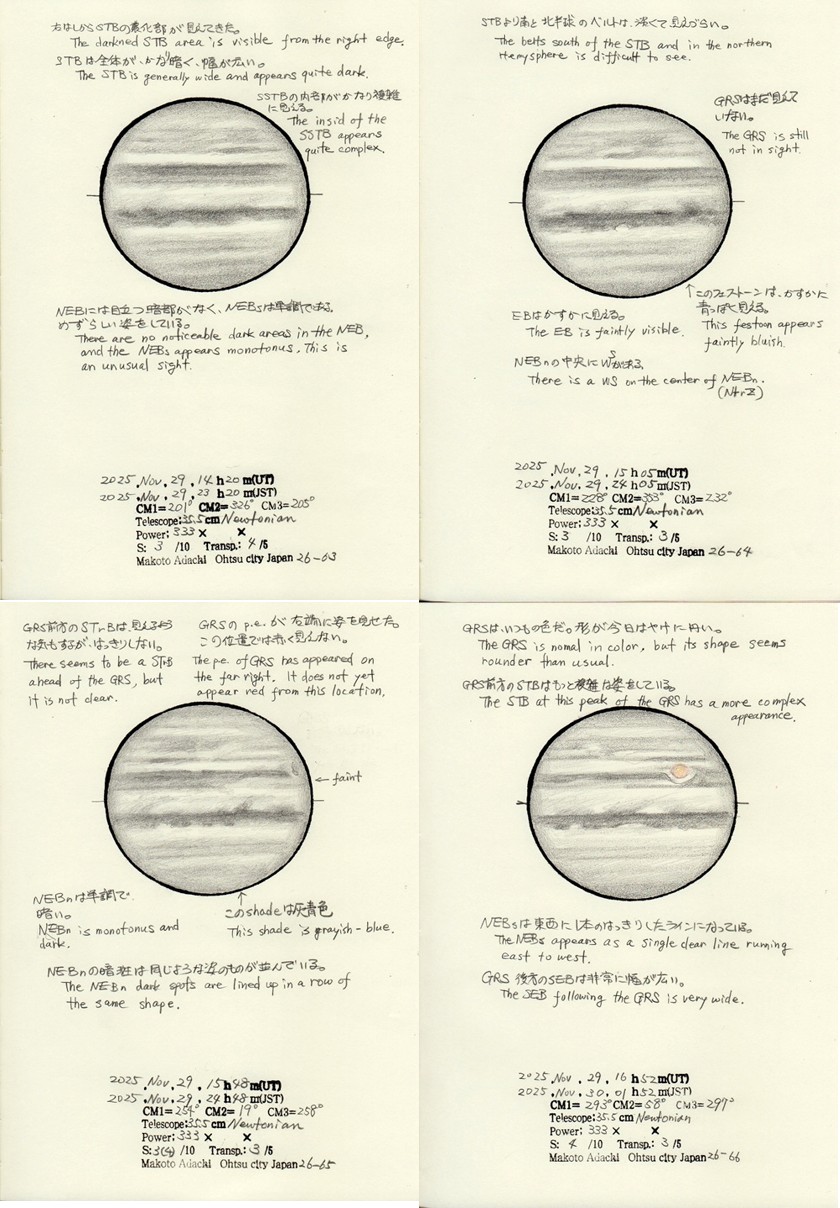 右はしからSTBの濃化部が見えてきた。
The darkned STB area is visible from the right edge.
STBは全体が、かなり暗く、幅が広い。
The STB is generally wide and appears quite dark.
SSTBの内部がかなり複雑
に見える。
The insid of the
SSTB appears
quite complex.
NEBには目立つ暗部がなく、NEBsは単調である。
めずらしい姿をしている。
There are no noticeable dark areas in the NEB,
and the NEBs appears monotonus. This is
an unusual sight.
2025.Nov.29.14h20m(UT)
2025.Nov.29.23h20m(JST)
CM1=201° CM2=326° CM3=205°
Telescope:35.5cm Newtonian
Power:333× ×
S: 3 /10 Transp.: 4 /5
Makoto Adachi Ohtsu city Japan 26-63
STBより南と北半球のベルトは、淡くて見えづらい。
The belts south of the STB and in the northern
Hemysphere is difficult to see.
GRSはまだ見えて
いない。
The GRS is still
not in sight.
↑このフェストーンは、かすかに
青っぽく見える。
This festoon appears
faintly bluish.
EBはかすかに見える。
The EB is faintly visible.
NEBnの中央にWSがある。
There is a WS on the center of NEBn.
(NTrZ)
2025.Nov.29.15h05m(UT)
2025.Nov.29.24h05m(JST)
CM1=228° CM2=353° CM3=232°
Telescope:35.5cm Newtonian
Power:333× ×
S: 3 /10 Transp.: 3 /5
Makoto Adachi Ohtsu city Japan 26-64
GRS前方のSTrBは、見えるような
気もするが、はっきりしない。
There seems to be a STrB
ahead of the GRS, but
it is not clear.
GRSのp.e.が右端に姿を見せた。
この位置では赤く見えない。
The p.e. of GRS has appeared on
the far right. It does not yet
appear red from this location.
← faint
NEBnは単調で
暗い。
NEBn is monotonus and
dark.
↑
このshadeは灰青色
This shade is grayish-blue.
NEBnの暗斑は同じような姿のものが並んでいる。
The NEBn dark spots are lined up in a row of
the same shape.
2025.Nov.29.15h48m(UT)
2025.Nov.29.24h48m(JST)
CM1=254° CM2=19° CM3=258°
Telescope:35.5cm Newtonian
Power:333× ×
S:3(4)/10 Transp.:3 /5
Makoto Adachi Ohtsu city Japan 26-65
GRSは、いつもの色だ。形が今日はヤケに円い。
The GRS is nomal in color, but its shape seems
rounder than usual.
GRS前方のSTBはもっと複雑な姿をしている。
The STB at this peak of the GRS has a more complex
appearance.
NEBsは東西に1本のはっきりしたラインになっている。
The NEBs appears as a single clear line running
east to west.
GRS後方のSEBは非常に幅が広い。
The SEB following the GRS is very wide.
2025.Nov.29.16h52m(UT)
2025.Nov.30.01h52m(JST)
CM1=293° CM2=58° CM3=297°
Telescope:35.5cm Newtonian
Power:333× ×
S: 4 /10 Transp.: 3 /5
Makoto Adachi Ohtsu city Japan 26-66